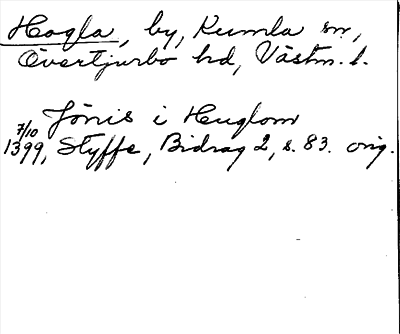 Hogla, by, Kumla sn,
Övertjurbo hd, Västm. l.
Jönis i Huglom
7/10
1399, Styffe, Bidrag 2, s. 83. orig.